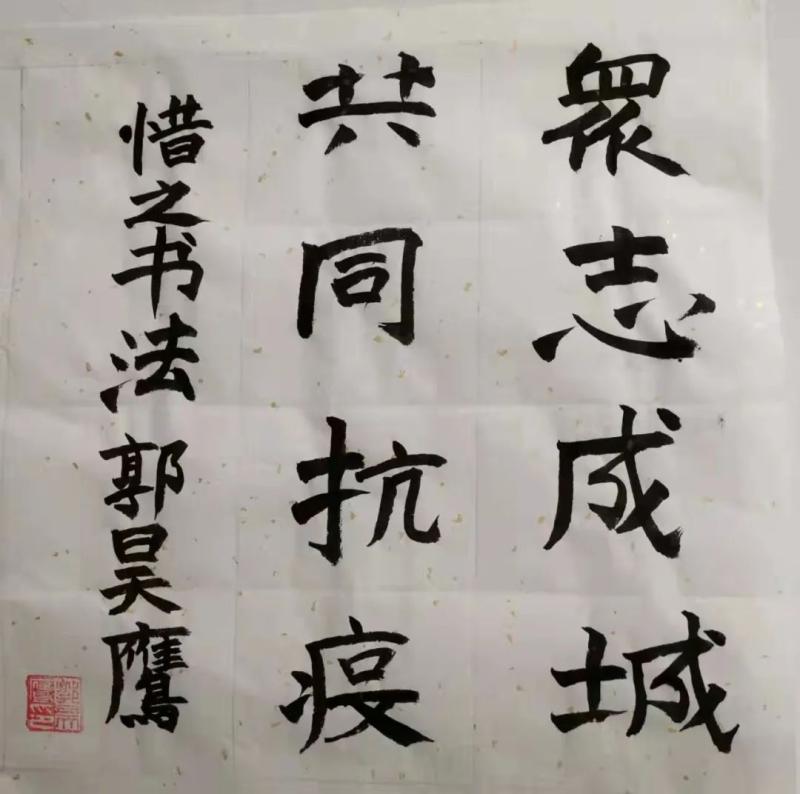 眾志成城
共同抗疫
惜之书法 郭昊鹰